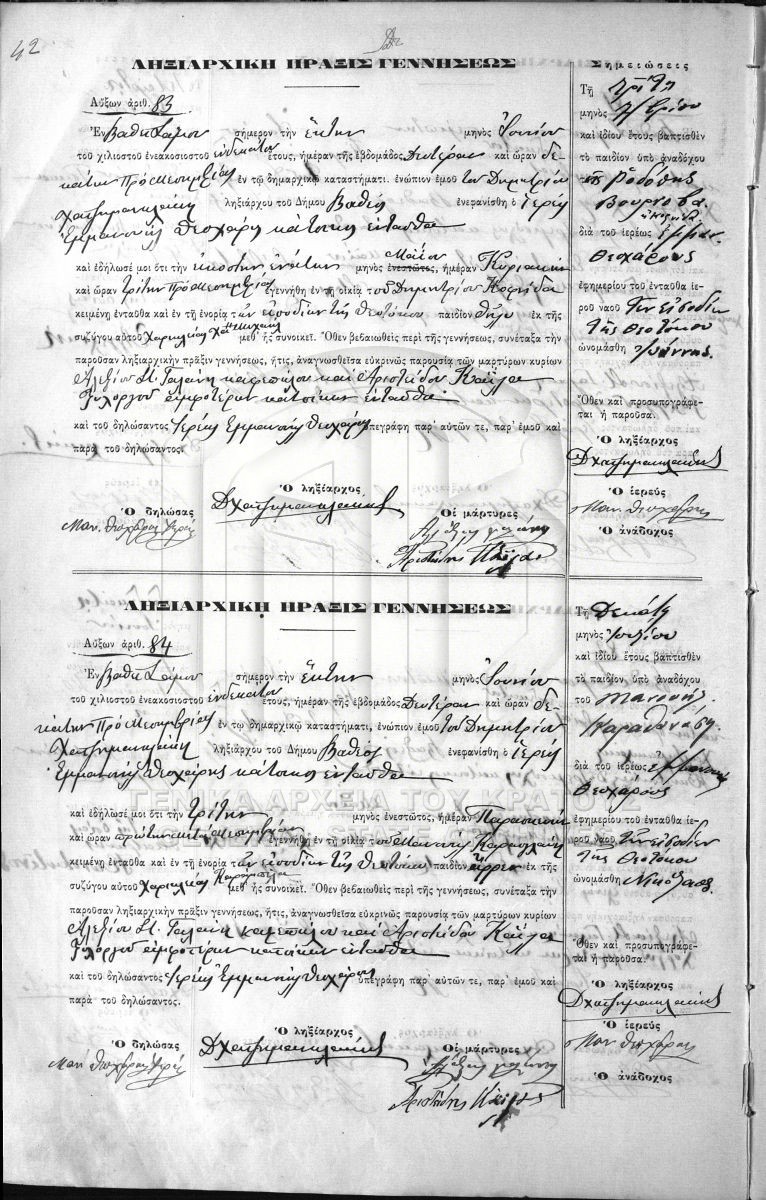 42
ΛΗΞΙΑΡΧΙΚΗ ΠΡΑΞΙΣ ΓΕΝΝΗΣΕΩΣ
Αὔξων ἀριθ. 83
Ἐν Βαθεῖ Σάμου σήμερον τὴν ἕκτην μηνὸς Ἰουνίου
τοῦ χιλιοστοῦ ἐνεακοσιοστοῦ ἑνδεκάτου ἔτους, ἡμέραν τῆς ἑβδομάδος Δευτέραν καὶ ὥραν δε-
κάτην Πρὸ Μεσημβρίας ἐν τῷ δημαρχικῷ καταστήματι, ἐνώπιον ἐμοῦ τοῦ Δημητρίου
Χατζημανωλάκη ληξιάρχου τοῦ Δήμου Βαθέος ἐνεφανίσθη ὁ ἱερεὺς
Ἐμμανουὴλ Θεοχάρης κάτοικος ἐνταῦθα
καὶ ἐδήλωσέ μοι ὅτι τὴν εἰκοστὴν ἐνάτην μηνὸς ἐνεστῶτος, Μαΐου ἡμέραν Κυριακὴν
καὶ ὥραν τρίτην Πρὸ Μεσημβρίας ἐγεννήθη ἐν τῇ οἰκίᾳ τοῦ Δημητρίου
κειμένῃ ἐνταῦθα καὶ ἐν τῇ ἐνορίᾳ τῶν εἰσοδίων τῆς Θεοτόκου παιδίον θῆλυ ἐκ τῆς
συζύγου αὐτοῦ Χαρικλείας μεθ' ἧς συνοικεῖ. Ὅθεν βεβαιωθεὶς περὶ τῆς γεννήσεως, συνέταξα τὴν
παροῦσαν ληξιαρχικὴν πρᾶξιν γεννήσεως, ἥτις, ἀναγνωσθεῖσα εὐκρινῶς παρουσίᾳ τῶν μαρτύρων κυρίων
Ἀλεξίου Η. Γαλάνη καφεπώλου καὶ Ἀριστείδου
ἀμφοτέρων κατοίκων ἐνταῦθα
καὶ τοῦ δηλώσαντος Ἱερέως Ἐμμανουὴλ Θεοχάρους ὑπεγράφη παρ' αὐτῶν τε, παρ' ἐμοῦ καὶ
παρὰ τοῦ δηλώσαντος.
Ὁ δηλώσας
Μαν. Θεοχάρης Ἱερεὺς
Ὁ ληξίαρχος
ΔΧατζημανωλάκης
Οἱ μάρτυρες
Ἀριστείδης
Σημειώσεις
Τῇ
μηνὸς
καὶ ἰδίου ἔτους βαπτισθὲν
τὸ παιδίον ὑπὸ ἀναδόχου
τῆς Ῥοδόπης
διὰ τοῦ ἱερέως Ἐμμαν.
Θεοχάρους
ἐφημερίου τοῦ ἐνταῦθα ἱε-
ροῦ ναοῦ τῶν εἰσοδίων
τῆς Θεοτόκου
ὠνομάσθη
Ὅθεν καὶ προσυπογράφε-
ται ἡ παροῦσα.
Ὁ ληξίαρχος
ΔΧατζημανωλάκης
Ὁ ἱερεὺς
Μαν. Θεοχάρης
Ὁ ἀνάδοχος
ΛΗΞΙΑΡΧΙΚΗ ΠΡΑΞΙΣ ΓΕΝΝΗΣΕΩΣ
Αὔξων ἀριθ. 84
Ἐν Βαθεῖ Σάμου σήμερον τὴν ἕκτην μηνὸς Ἰουνίου
τοῦ χιλιοστοῦ ἐνεακοσιοστοῦ ἑνδεκάτου ἔτους, ἡμέραν τῆς ἑβδομάδος Δευτέραν καὶ ὥραν δε-
κάτην Πρὸ Μεσημβρίας ἐν τῷ δημαρχικῷ καταστήματι, ἐνώπιον ἐμοῦ τοῦ Δημητρίου
Χατζημανωλάκη ληξιάρχου τοῦ Δήμου Βαθέος ἐνεφανίσθη ὁ ἱερεὺς
Ἐμμανουὴλ Θεοχάρης κάτοικος ἐνταῦθα
καὶ ἐδήλωσέ μοι ὅτι τὴν τρίτην μηνὸς ἐνεστῶτος, ἡμέραν Παρασκευὴν
καὶ ὥραν πρώτην μετὰ μεσημβρίαν ἐγεννήθη ἐν τῇ οἰκίᾳ τοῦ Μανουὴλ
κειμένῃ ἐνταῦθα καὶ ἐν τῇ ἐνορίᾳ τῶν εἰσοδίων τῆς Θεοτόκου παιδίον ἄρρεν ἐκ τῆς
συζύγου αὐτοῦ Χαρικλείας μεθ' ἧς συνοικεῖ. Ὅθεν βεβαιωθεὶς περὶ τῆς γεννήσεως, συνέταξα τὴν
παροῦσαν ληξιαρχικὴν πρᾶξιν γεννήσεως, ἥτις, ἀναγνωσθεῖσα εὐκρινῶς παρουσίᾳ τῶν μαρτύρων κυρίων
Ἀλεξίου Η. Γαλάνη καφεπώλου καὶ Ἀριστείδου
ἀμφοτέρων κατοίκων ἐνταῦθα
καὶ τοῦ δηλώσαντος Ἱερέως Ἐμμανουὴλ Θεοχάρους ὑπεγράφη παρ' αὐτῶν τε, παρ' ἐμοῦ καὶ
παρὰ τοῦ δηλώσαντος.
Ὁ δηλώσας
Μαν. Θεοχάρης Ἱερεὺς
Ὁ ληξίαρχος
ΔΧατζημανωλάκης
Οἱ μάρτυρες
Ἀριστείδης
Τῇ Δεκάτῃ
μηνὸς Ἰουλίου
καὶ ἰδίου ἔτους βαπτισθὲν
τὸ παιδίον ὑπὸ ἀναδόχου
τοῦ Μανουὴλ
διὰ τοῦ ἱερέως Ἐμμανουὴλ
Θεοχάρους
ἐφημερίου τοῦ ἐνταῦθα ἱε-
ροῦ ναοῦ τῶν εἰσοδίων
τῆς Θεοτόκου
ὠνομάσθη Νικόλαος
Ὅθεν καὶ προσυπογράφε-
ται ἡ παροῦσα.
Ὁ ληξίαρχος
ΔΧατζημανωλάκης
Ὁ ἱερεὺς
Μαν. Θεοχάρης
Ὁ ἀνάδοχος
ΓΕΝΙΚΑ ΑΡΧΕΙΑ ΤΟΥ ΚΡΑΤΟΥΣ